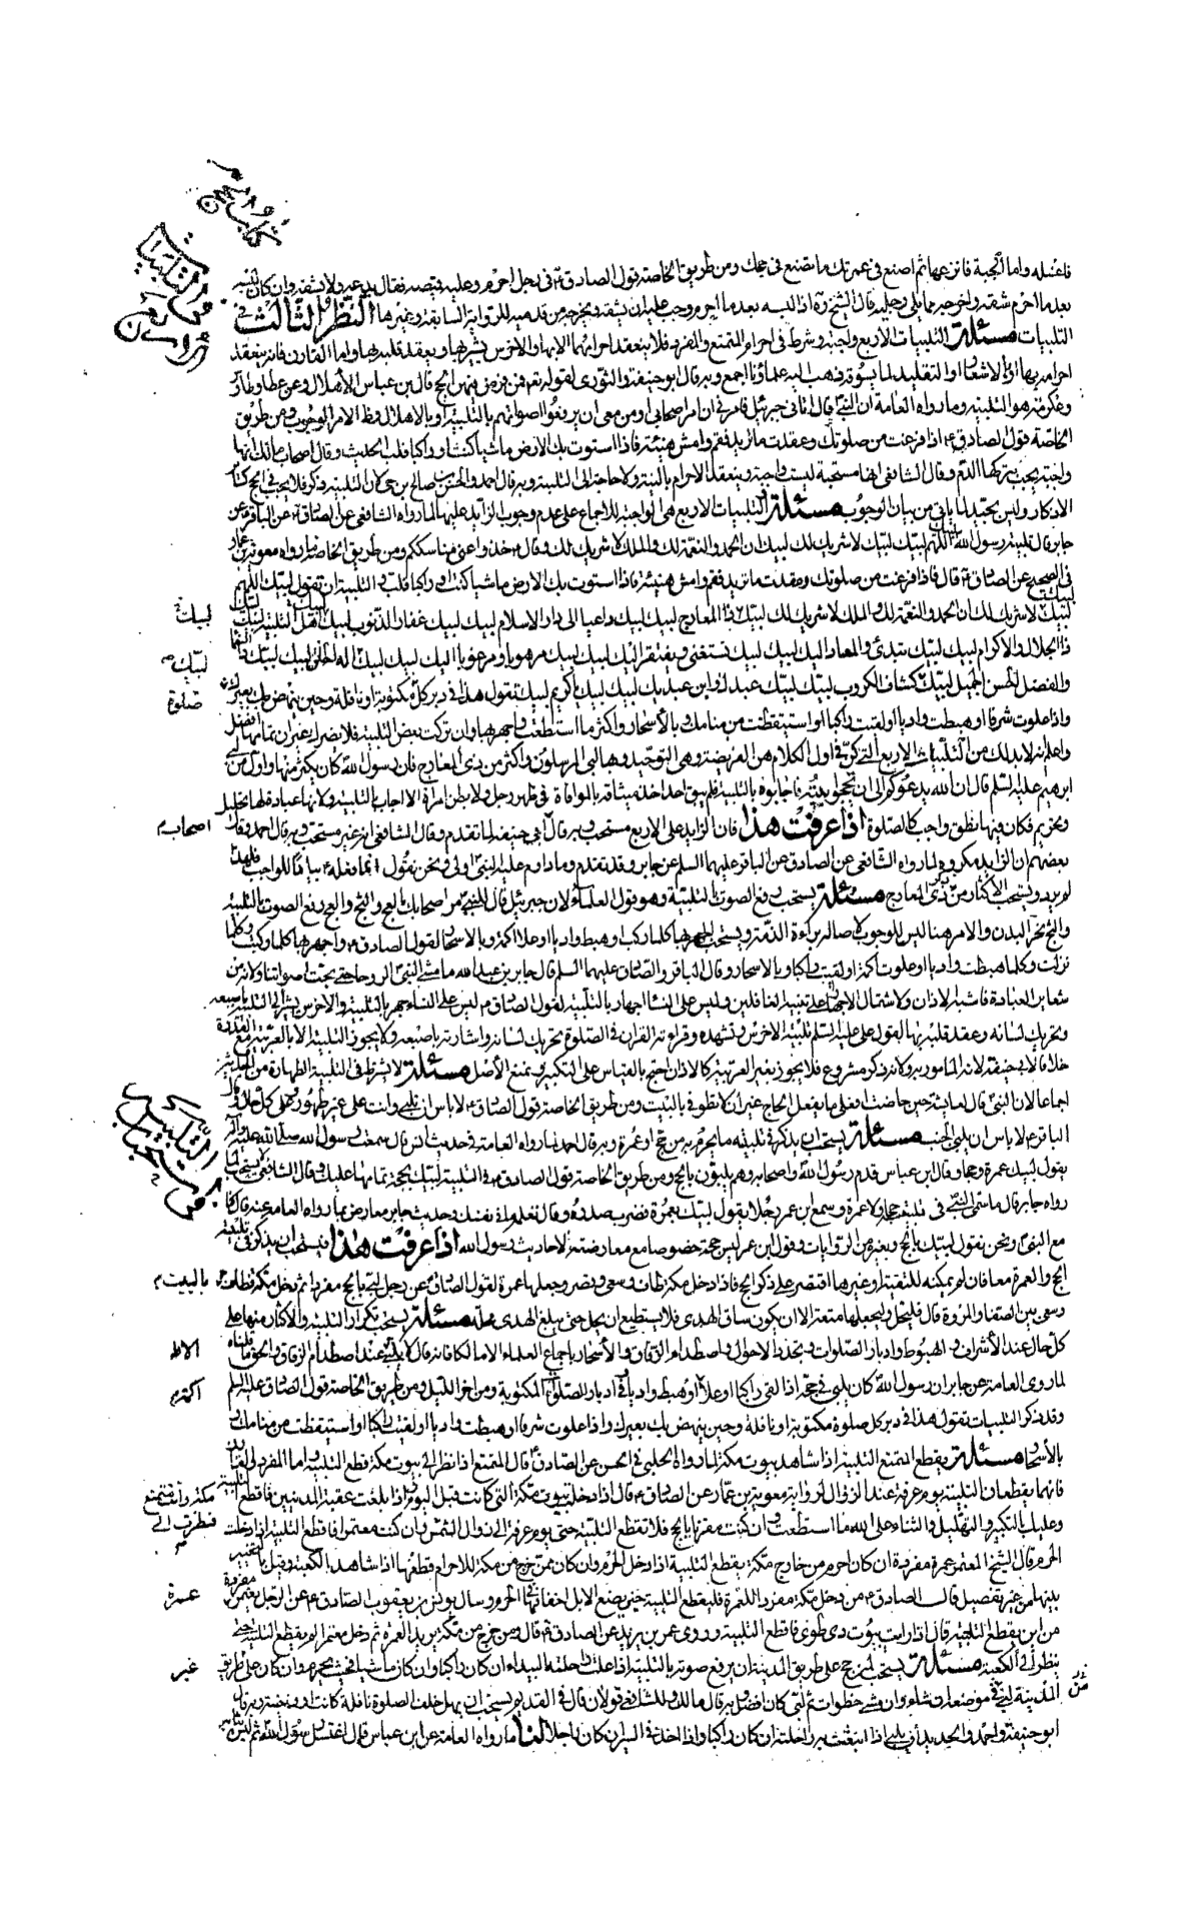 فاغسله واما الجبة فانزعها ثم اصنع في عمرتك ما تصنع في حجك ومن طريق الخاصة قول الصادق ع في رجل احرم وعليه قميصه فقال ينزعه ولا يشقه وان كان لبسه
بعدما احرم شقه واخرجه مما يلي رجليه قال الشيخ ره اذا لبسه بعد ما احرم وجب عليه ان يشقه ويخرجه من قدميه للرواية السابقة وغيرها النظر الثالث في
التلبيات مسئلة التلبيات الاربع واجبة وشرط في احرام المتمتع والمفرد فلا ينعقد احرامهما الا بها والاخرس يشير بها ويعقد قلبه بها واما القارن فانه ينعقد
احرامه بها او بالاشعار او التقليد لما يسوقه ذهب اليه علماؤنا اجمع وبه قال ابو حنيفة والثوري لقوله تع فمن فرض فيهن الحج قال ابن عباس الاهلال وعن عطا وطاوس
وعكرمة هو التلبية وما رواه العامة ان النبي قال اتاني جبرئيل فامرني ان امر اصحابي ومن معي ان يرفعوا اصواتهم بالتلبية او بالاهلال وظ الامر الوجوب ومن طريق
الخاصة قول الصادق ع اذا فرغت من صلوتك وعقدت ما تريد فقم وامش هنيئة فاذا استوت بك الارض ماشيا كنت او راكبا فلب الحديث وقال اصحاب مالك انها
واجبة يجب بتركها الدم وقال الشافعي انها مستحبة ليست واجبة وينعقد الاحرام بالنية ولا حاجة الى التلبية وبه قال احمد والحسن بن صالح بن حي لان التلبية ذكر فلا يجب في الحج كسائر
الاذكار وليس بجيد لما ياتي من بيان الوجوب مسئلة التلبيات الاربع هي الواجبة للاجماع على عدم وجوب الزايد عليها لما رواه الشافعي عن الصادق ع عن الباقر ع عن
جابر قال تلبية رسول الله لبيك اللهم لبيك لبيك لا شريك لك لبيك ان الحمد والنعمة لك والملك لا شريك لك وقال ع خذوا عني مناسككم ومن طريق الخاصة ما رواه معوية بن عمار
في الصحيح عن الصادق ع قال فاذا فرغت من صلوتك وعقدت ما تريد فقم وامش هنيئة فاذا استوت بك الارض ماشيا كنت او راكبا فلب والتلبية ان تقول لبيك اللهم
لبيك لا شريك لك ان الحمد والنعمة لك والملك لا شريك لك لبيك ذا المعارج لبيك لبيك داعيا الى دار الاسلام لبيك لبيك غفار الذنوب لبيك لبيك اهل التلبية لبيك لبيك
ذا الجلال والاكرام لبيك لبيك تبدئ والمعاد اليك لبيك لبيك تستغني ويفتقر اليك لبيك لبيك مرهوبا ومرغوبا اليك لبيك لبيك اله الحق لبيك لبيك ذا النعماء
والفضل الحسن الجميل لبيك لبيك كشاف الكروب لبيك لبيك عبدك وابن عبديك لبيك لبيك يا كريم لبيك تقول هذا في دبر كل مكتوبة او نافلة وحين ينهض بك بعيرك
واذا علوت شرفا او هبطت واديا او لقيت راكبا او استيقظت من منامك وبالاسحار واكثر ما استطعت واجهر بها وان تركت بعض التلبية فلا يضرك غير ان تمامها افضل
واعلم انه لا بد لك من التلبيات الاربع التي كن في اول الكلام هن الفريضة وهي التوحيد وبها لبى المرسلون واكثر من ذي المعارج فان رسول الله كان يكثر منها واول من لبى
ابرهيم عليه السلم قال ان الله يدعوكم الى ان تحجوا بيته فاجابوه بالتلبية فلم يبق احد اخذ ميثاقه بالموافاة في ظهر رجل ولا بطن امراة الا اجاب بالتلبية ولانها عبادة لها تحليل
وتحريم فكان فيها نطق واجب كالصلوة اذا عرفت هذا فان الزايد على الاربع مستحب وبه قال ابي حنيفة لما تقدم وقال الشافعي انه غير مستحب وبه قال احمد وقال
بعضهم ان الزايد مكروه لما رواه الشافعي عن الصادق عن الباقر عليهما السلم عن جابر وقد تقدم وما داوم عليه النبي اولى ونحن نقول انما فعله ع بيانا للواجب فلهذا
لم يزد ويستحب الاكثار من ذي المعارج مسئلة يستحب رفع الصوت بالتلبية وهو قول العلماء لان جبرئيل قال للنبي مر اصحابك بالعج والثج والعج رفع الصوت بالتلبية
والثج نحر البدن والامر هنا ليس للوجوب لاصالة براءة الذمة ويستحب الجهر بها كلما ركب او هبط واديا او علا اكمة وبالاسحار لقول الصادق ع واجهر بها كلما ركبت وكلما
نزلت وكلما هبطت واديا او علوت اكمة او لقيت راكبا وبالاسحار وقال الباقر والصادق عليهما السلم قال جابر بن عبد الله ما مشى النبي الروحا حتى بحت اصواتنا ولانه من
شعاير العبادة فاشبه الاذان ولاشتمال الاجهار على تنبيه الغافلين وليس على النساء اجهار بالتلبية لقول الصادق ع ليس على النساء جهر بالتلبية والاخرس يشير الى التلبية باصبعه
وتحريك لسانه وعقد قلبه بها لقول علي عليه السلم تلبية الاخرس وتشهده وقراءته القران في الصلوة تحريك لسانه واشارته باصبعه ولا يجوز التلبية الا بالعربية مع القدرة
خلافا لابي حنيفة لانه المامور به ولانه ذكر مشروع فلا يجوز بغير العربية كالاذان احتج بالقياس على التكبير ونمنع الاصل مسئلة لا يشترط في التلبية الطهارة من الحدثين
اجماعا لان النبي قال لعايشة حين حاضت افعلي ما يفعل الحاج غير ان لا تطوفي بالبيت ومن طريق الخاصة قول الصادق ع لا باس ان تلبي وانت على غير طهور وعلى كل حال وقال
الباقر ع لا باس ان يلبي الجنب مسئلة يستحب ان يذكر في تلبيته ما يحرم به من حج او عمرة وبه قال احمد لما رواه العامة في حديث انس قال سمعت رسول الله صلى الله عليه واله
يقول لبيك عمرة وحجا وقال ابن عباس قدم رسول الله واصحابه وهم يلبون بالحج ومن طريق الخاصة قول الصادق ع في التلبية لبيك بحجة تمامها عليك وقال الشافعي لا يستحب لما
رواه جابر قال ما سمى النبي في تلبيته حجا ولا عمرة وسمع ابن عمر رجلا يقول لبيك بعمرة فضرب صدره وقال تعلمه ما في نفسك وحديث جابر معارض بما رواه العامة عنه قال كنا
مع النبي ونحن نقول لبيك بالحج وبغيره من الروايات وقول ابن عمر ليس حجة خصوصا مع معارضته لاحاديث رسول الله اذا عرفت هذا فيستحب ان يذكر في تلبيته
الحج والعمرة معا فان لم يمكنه للتقية او غيرها اقتصر على ذكر الحج فاذا دخل مكة طاف وسعى وقصر وجعلها عمرة لقول الصادق ع عن رجل لبى بالحج مفردا ثم دخل مكة فطاف
وسعى بين الصفا والمروة قال فليحل وليجعلها متعة الا ان يكون ساق الهدي فلا يستطيع ان يحل حتى يبلغ الهدي محله مسئلة يستحب تكرار التلبية والاكثار منها على
كل حال عند الاشراف والهبوط وادبار الصلوات وتجدد الاحوال واصطدام الرفاق والاسحار باجماع العلماء الا مالكا فانه قال لا يلبي عند اصطدام الرفاق والحق ما قلناه
لما روى العامة عن جابر ان رسول الله كان يلبي في حجه اذا لقي راكبا او علا او هبط واديا وفي ادبار الصلوة المكتوبة ومن اخر الليل ومن طريق الخاصة قول الصادق عليه السلم
وقد ذكر التلبيات تقول هذا في دبر كل صلوة مكتوبة او نافلة وحين ينهض بك بعيرك واذا علوت شرفا او هبطت واديا او لقيت راكبا او استيقظت من منامك
بالاسحار مسئلة يقطع المتمتع التلبية اذا شاهد بيوت مكة لما رواه الحلبي في الحسن عن الصادق ع قال المتمتع اذا نظر الى بيوت مكة قطع التلبية واما المفرد والقارن
فانهما يقطعان التلبية يوم عرفة عند الزوال لرواية معوية بن عمار عن الصادق ع قال اذا دخلت بيوت مكة التي كانت قبل اليوم اذا بلغت عقبة المدنيين فاقطع التلبية
وعليك بالتكبير والتهليل والثناء على الله ما استطعت وان كنت مفردا بالحج فلا تقطع التلبية حتى يوم عرفة الى زوال الشمس وان كنت معتمرا فاقطع التلبية اذا دخلت
الحرم وقال الشيخ المعتمر عمرة مفردة ان كان احرم من خارج مكة يقطع التلبية اذا دخل الحرم وان كان ممن خرج من مكة للاحرام قطعها اذا شاهد الكعبة وقيل بالتخيير
بينهما من غير تفصيل قال الصادق ع من دخل مكة مفردا للعمرة فليقطع التلبية حين يضع الابل اخفافها في الحرم وسال يونس بن يعقوب الصادق ع عن الرجل يعتمر مفردة
من اين يقطع التلبية قال اذا رايت بيوت ذي طوى فاقطع التلبية وروى عمر بن يزيد عن الصادق ع قال ومن خرج من مكة يريد العمرة ثم دخل معتمرا لم يقطع التلبية حتى
ينظر الى الكعبة مسئلة يستحب لمن حج على طريق المدينة ان يرفع صوته بالتلبية اذا علت راحلته البيداء ان كان راكبا وان كان ماشيا فحيث يحرم وان كان على طريق
المدينة لبى في موضعه ان شاء وان مشى خطوات ثم لبى كان افضل وبه قال مالك وللشافعي قولان قال في القديم يستحب ان يهل خلف الصلوة نافلة كانت او فريضة وبه قال
ابو حنيفة واحمد والجديد ان يلبي اذا انبعثت به راحلته ان كان راكبا واذا اخذ في السير ان كان راجلا لنا ما رواه العامة عن ابن عباس قال اغتسل رسول الله ثم لبس ثيابه
لبيك
لبيك
صلوة
اصحاب
بالبيت
الا انه
اكمة
مكة واقتمتع
فنظرت الى
عمرة
غير